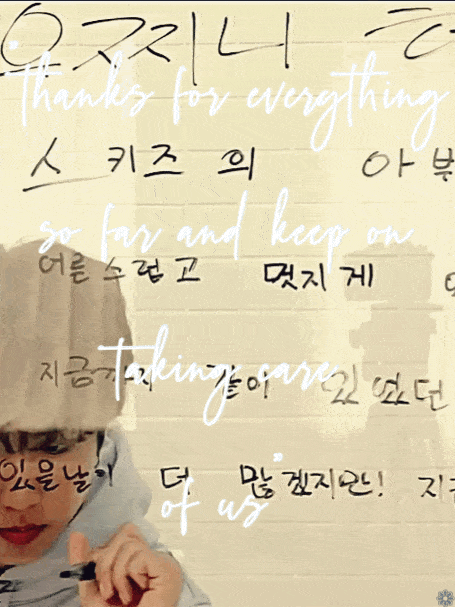 "thanks for everything
스키즈의
so far and keep on
어른스럽고 멋지게
taking care
지금까지 같이 있었던
있을날이 더 많겠지만!
of us"